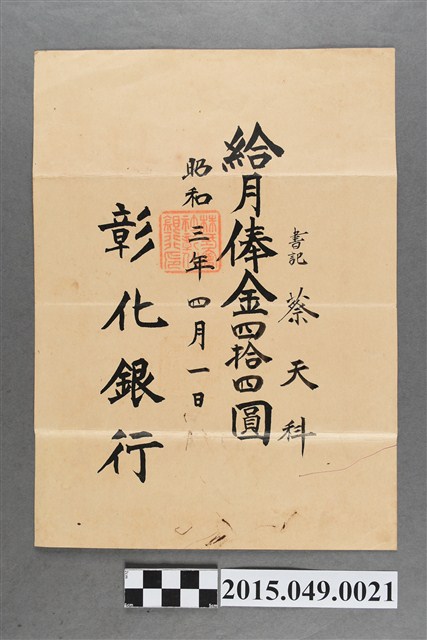 書記 蔡天科
給月俸金四拾四圓
昭和三年四月一日
彰化銀行
2015.049.0021